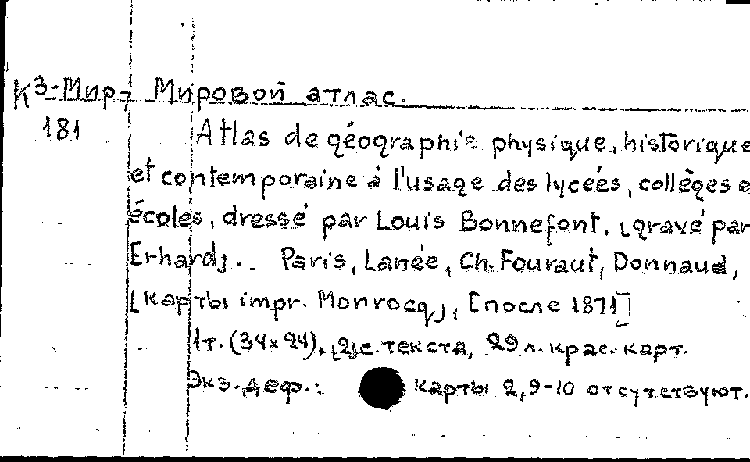 К3-Мир, Мировой атлас.
181 Atlas de géographie physique, historique
et contemporaine à l'usage des lycées, collèges e
écoles, dressé par Louis Bonnefont. [gravé par
Erhard]. Paris, Lanée, Ch. Fouraut, Donnaud,
[карты impr. Monrocq], [после 1871]
1т. (34×24), [2]с. текста, 29 л. крас. карт.
Экз. деф.: карты 2,9-10 отсутствуют.